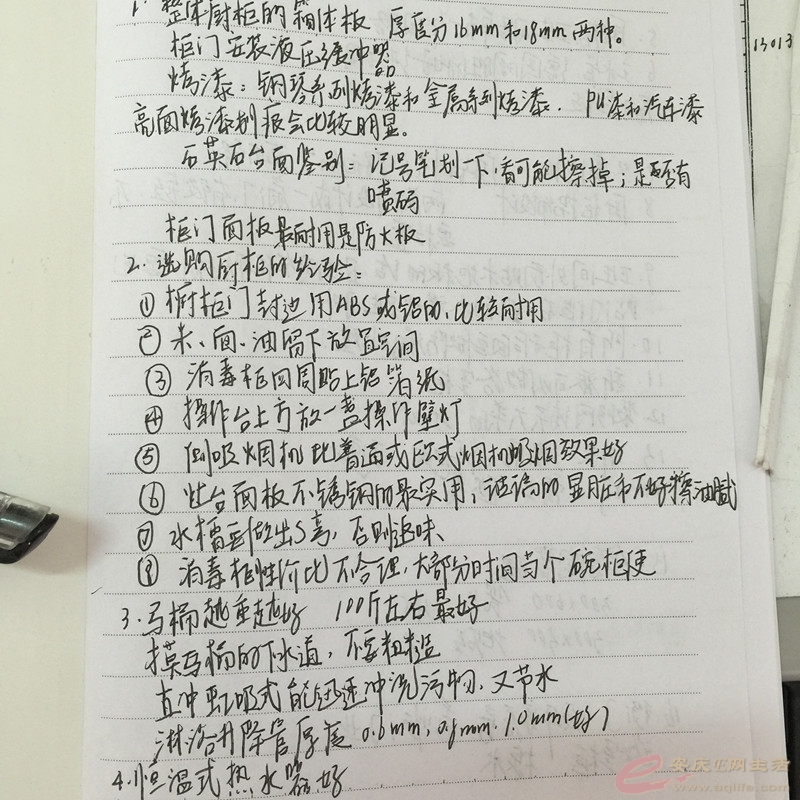 1. 整体厨柜的箱体板 厚度分16mm和18mm两种。
柜门安装液压缓冲器
烤漆：钢琴系列烤漆和金属系列烤漆. PU漆和汽车漆
亮面烤漆划痕会比较明显。
石英石台面鉴别：记号笔划一下,看可能擦掉；是否有
喷码
柜门面板最耐用是防火板
2. 选购厨柜的经验：
① 橱柜门封边用ABS或铝的,比较耐用
② 米、面、油留下放置空间
③ 消毒柜四周贴上铝箔纸
④ 操作台上方放一盏操作壁灯
⑤ 侧吸烟机比普通或欧式烟机吸烟效果好
⑥ 灶台面板不锈钢的最实用,玻璃的显脏和不好擦油腻
⑦ 水槽要做出S弯,否则返味
⑧ 消毒柜性价比不合理,大部分时间当个碗柜使
3.马桶越重越好 100斤左右最好
摸马桶的下水道,不要粗糙
直冲虹吸式能迅速冲洗污物,又节水
淋浴升降管厚度 0.6mm,0.8mm.1.0mm(好)
4.恒温式热水器好
13013
安庆E网生活
www.aqlife.com